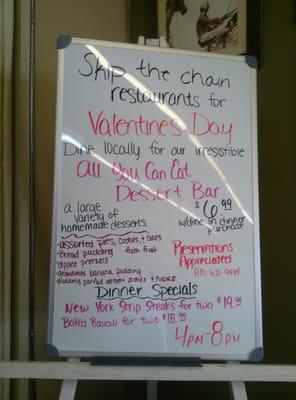 Skip the chain
restaurants for
Valentines Day
Dine locally for our irresistible
All You Can Eat
Dessert Bar
a large
variety of
homemade desserts
$6.99
w/dine in dinner
purchase
-assorted pies, cookies, & cakes
-Bread pudding -fresh fruit
-dipped pretzels
-Grandmas banana pudding
-pudding parfait dessert shots & MORE
Reservations
Appreciated
Dinner Specials
New York Strip Steaks for two $19.99
Baked Ravioli for two $18.99
4PM-8PM